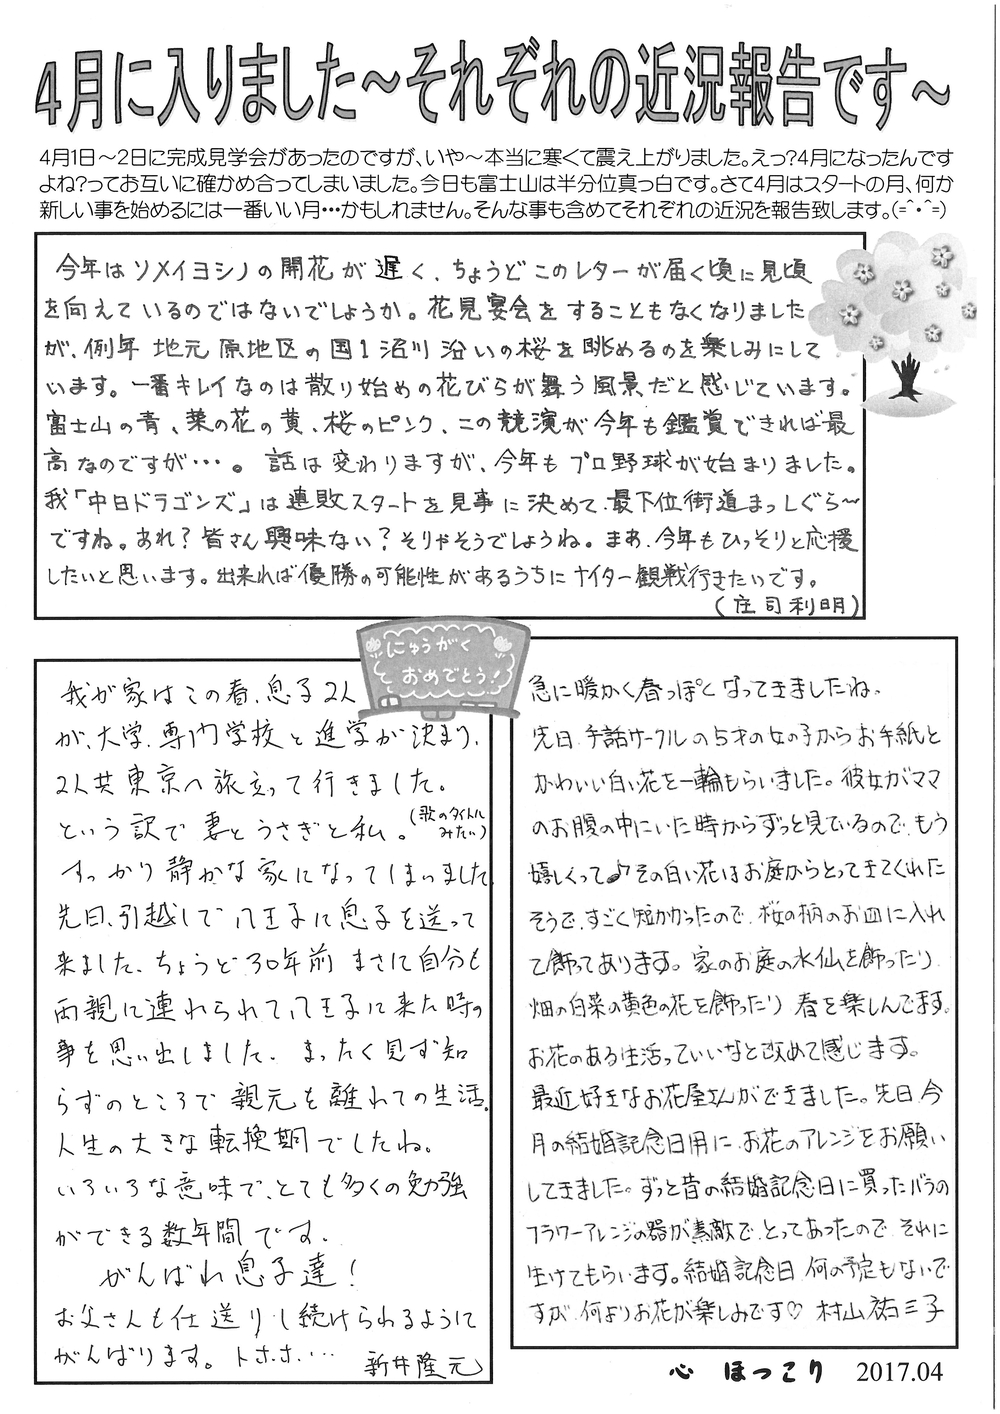 4月に入りました～それぞれの近況報告です～
4月1日～2日に完成見学会があったのですが、いや～本当に寒くて震え上がりました。えっ?4月になったんです
よね?ってお互いに確かめ合ってしまいました。今日も富士山は半分位真っ白です。さて4月はスタートの月、何か
新しい事を始めるには一番いい月・・・かもしれません。そんな事も含めてそれぞれの近況を報告致します。(=^・^=)
今年はソメイヨシノの開花が遅く、ちょうどこのレターが届く頃に見頃
を向えているのではないでしょうか。花見宴会をすることもなくなりました
が、例年地元原地区の国1沼川沿いの桜を眺めるのを楽しみにして
います。一番キレイなのは散り始めの花びらが舞う風景だと感じています。
富士山の青、菜の花の黄、桜のピンク、この競演が今年も鑑賞できれば最
高なのですが・・・。話は変わりますが、今年もプロ野球が始まりました。
我「中日ドラゴンズ」は連敗スタートを見事に決めて、最下位街道まっしぐら～
ですね。あれ?皆さん興味ない?そりゃそうでしょうね。まあ、今年もひっそりと応援
したいと思います。出来れば優勝の可能性があるうちにナイター観戦行きたいです。
(庄司利明)
にゅうがく
おめでとう!
我が家はこの春、息子2人
が、大学、専門学校と進学が決まり、
2人共東京へ旅立って行きました。
という訳で妻とうさぎと私。(歌のタイトルみたい)
すっかり静かな家になってしまいました
先日、引越しで八王子に息子を送って
来ました。ちょうど30年前まさに自分も
両親に連れられて八王子に来た時の
事を思い出しました。まったく見ず知
らずのところで親元を離れての生活。
人生の大きな転換期でしたね。
いろいろな意味で、とても多くの勉強
ができる数年間です。
がんばれ息子達!
お父さんも仕送りし続けられるように
がんばります。トホホ・・・ 新井隆元
急に暖かく春っぽくなってきましたね。
先日、手話サークルの5才の女の子からお手紙と
かわいい白い花を一輪もらいました。彼女がママ
のお腹の中にいた時からずっと見ているので、もう
嬉しくって♪その白い花はお庭からとってきてくれた
そうで、すごく短かかったので、桜の柄のお皿に入れ
て飾ってあります。家のお庭の水仙を飾ったり、
畑の白菜の黄色の花を飾ったり 春を楽しんでます。
お花のある生活っていいなと改めて感じます。
最近好きなお花屋さんができました。先日今
月の結婚記念日用に、お花のアレンジをお願い
してきました。ずっと昔の結婚記念日に買ったバラの
フラワーアレンジの器が素敵で、とってあったので、それに
生けてもらいます。結婚記念日、何の予定もないで
すが、何よりお花が楽しみです♡ 村山祐三子
心 ほっこり 2017.04